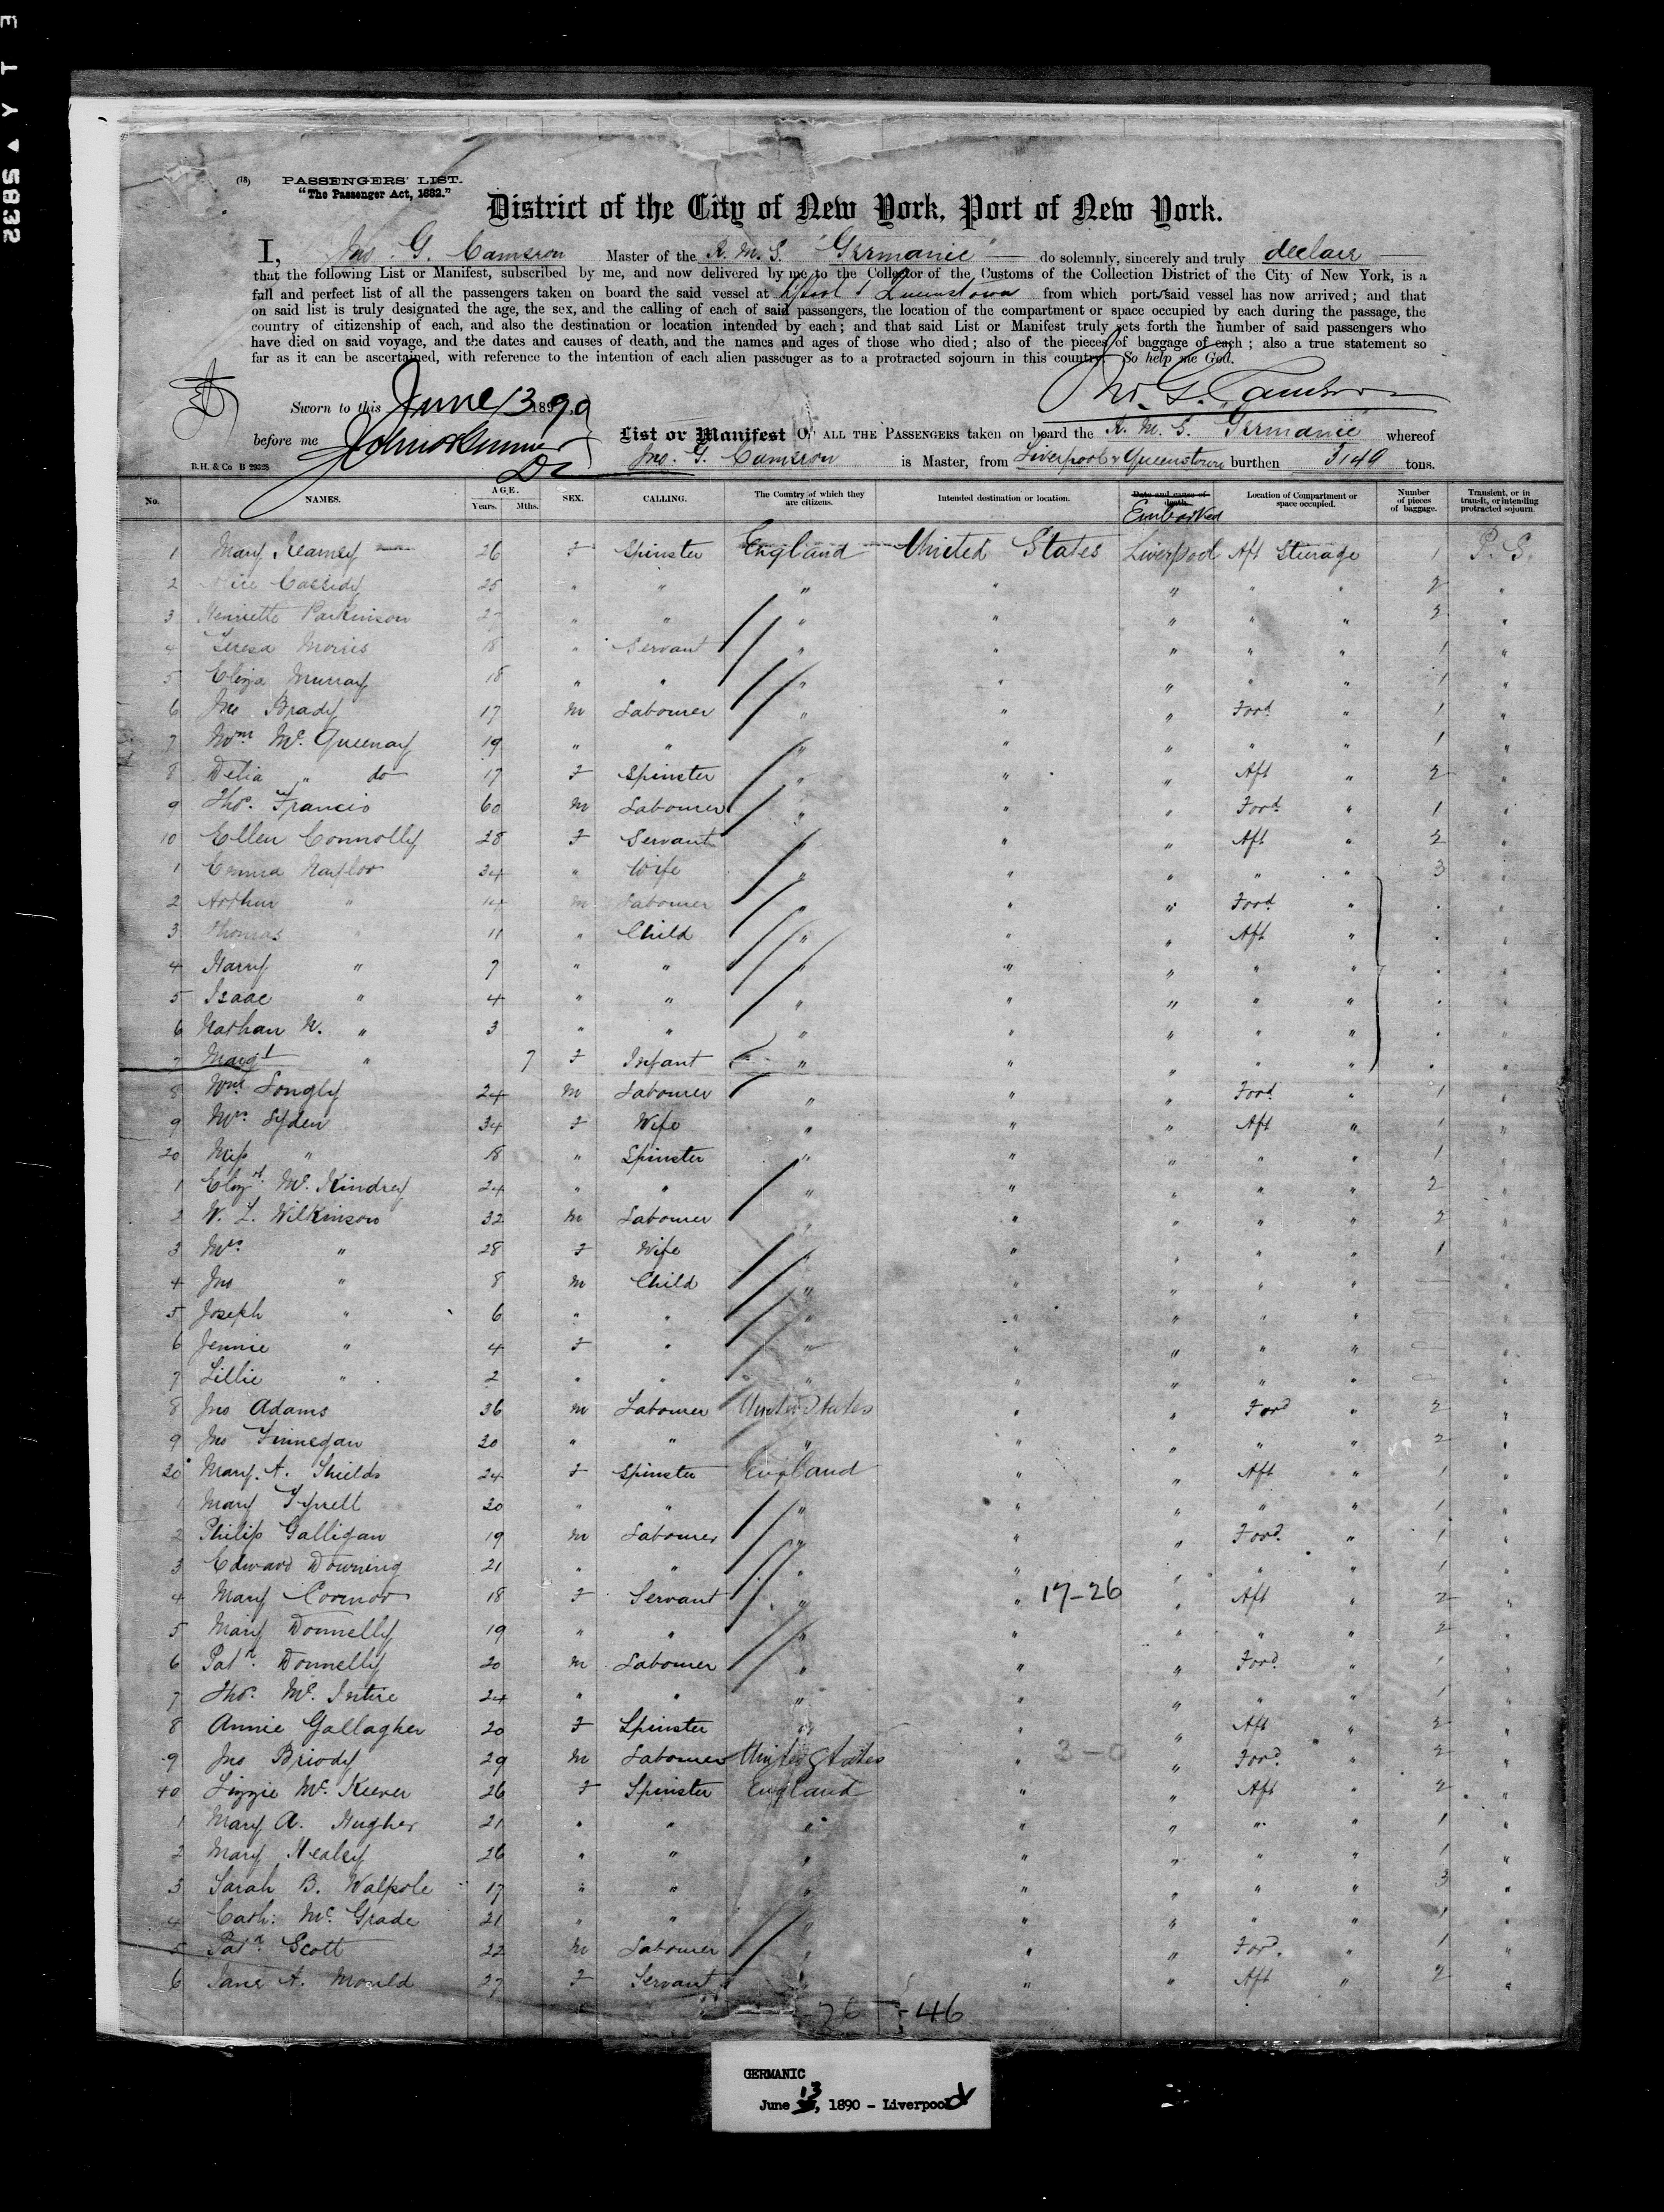 (18) PASSENGERS' LIST.
"The Passenger Act, 1882."
District of the City of New York, Port of New York.
I, Jno. G. Cameron Master of the R. M. S. "Germanic" do solemnly, sincerely and truly declare
that the following List or Manifest, subscribed by me, and now delivered by me to the Collector of the Customs of the Collection District of the City of New York, is a
full and perfect list of all the passengers taken on board the said vessel at L'pool & Queenstown from which ports said vessel has now arrived; and that
on said list is truly designated the age, the sex, and the calling of each of said passengers, the location of the compartment or space occupied by each during the passage, the
country of citizenship of each, and also the destination or location intended by each; and that said List or Manifest truly sets forth the number of said passengers who
have died on said voyage, and the dates and causes of death, and the names and ages of those who died; also of the pieces of baggage of each; also a true statement so
far as it can be ascertained, with reference to the intention of each alien passenger as to a protracted sojourn in this country. So help me God.
Jno. G. Cameron
Sworn to this June 13 1890
before me
List or Manifest OF ALL THE PASSENGERS taken on board the R. M. S. "Germanic" whereof
B.H. & Co B 29328 Jno. G. Cameron is Master, from Liverpool & Queenstown burthen 3149 tons.
No. NAMES. AGE. Years. Mths. SEX. CALLING. The Country of which they are citizens. Intended destination or location. Date and cause of death. Embarked Location of Compartment or space occupied. Number of pieces of baggage. Transient, or in transit, or intending protracted sojourn.
1 Mary Kearney 26 F Spinster England United States Liverpool Aft Sturage 1 P. S.
2 Cassidy 25 " " " " " " " 2 "
3 Henriette Parkinson 27 " " " " " " " 2 "
4 Teresa Morris 18 " Servant " " " " " 1 "
5 Eliza Murray 18 " " " " " " " 1 "
6 Jno Brady 17 M Labourer " " " Ford " 1 "
7 Wm Mc. Queenay 19 " " " " " " " 1 "
8 Delia " do 17 F Spinster " " " Aft " 2 "
9 Thos. Francis 60 M Labourer " " " Ford " 1 "
10 Ellen Connolly 28 F Servant " " " Aft " 2 "
1 Emma Naylor 34 " Wife " " " " " 3 "
2 Arthur " 14 M Labourer " " " Ford " " "
3 Thomas " 11 " Child " " " Aft " " "
4 Harry " 7 " " " " " " " " "
5 Isaac " 4 " " " " " " " " "
6 Nathan N. " 3 " " " " " " " " "
7 Margt " 7 F Infant " " " " " " "
8 Wm Longly 24 M Labourer " " " Ford " 1 "
9 Mrs. Syden 34 F Wife " " " Aft " 1 "
20 Miss " 18 " Spinster " " " " " 1 "
1 Elizth. Mc. Kindrey 24 " " " " " " " 2 "
2 W. L. Wilkinson 32 M Labourer " " " " " 2 "
3 Mrs. " 28 F Wife " " " " " 1 "
4 Jno " 8 M Child " " " " " — "
5 Joseph " 6 " " " " " " " — "
6 Jennie " 4 F " " " " " " — "
7 Lillie " 2 " " " " " " " — "
8 Jno Adams 36 M Labourer United States " " Ford " 2 "
9 Jno Finnegan 30 " " " " " " " 2 "
30 Mary A. Shields 24 F Spinster England " " Aft " 1 "
1 Mary Tyrrell 20 " " " " " " " 1 "
2 Philip Galligan 19 M Labourer " " " Ford " 1 "
3 Edward Downing 21 " " " " " " " 1 "
4 Mary Connor 18 F Servant " " 17-26 " Aft " 2 "
5 Mary Donnelly 19 " " " " " " " 2 "
6 Patk. Donnelly 20 M Labourer " " " Ford " 1 "
7 Thos. Mc. Intire 24 " " " " " " " 1 "
8 Annie Gallagher 20 F Spinster " " " Aft " 2 "
9 Jno Briody 29 M Labourer United States " 3-0 " Ford " 2 "
40 Lizzie Mc. Keever 26 F Spinster England " " Aft " 2 "
1 Mary A. Hughes 21 " " " " " " " 1 "
2 Mary Healey 26 " " " " " " " 1 "
3 Sarah B. Walpole 17 " " " " " " " 3 "
4 Cath: Mc. Grade 21 " " " " " " " 1 "
5 Patk. Scott 22 M Labourer " " " Ford. " 1 "
6 Jane A. Mould 27 F Servant " " " Aft " 2 "
46
GERMANIC
June 13, 1890 - Liverpool